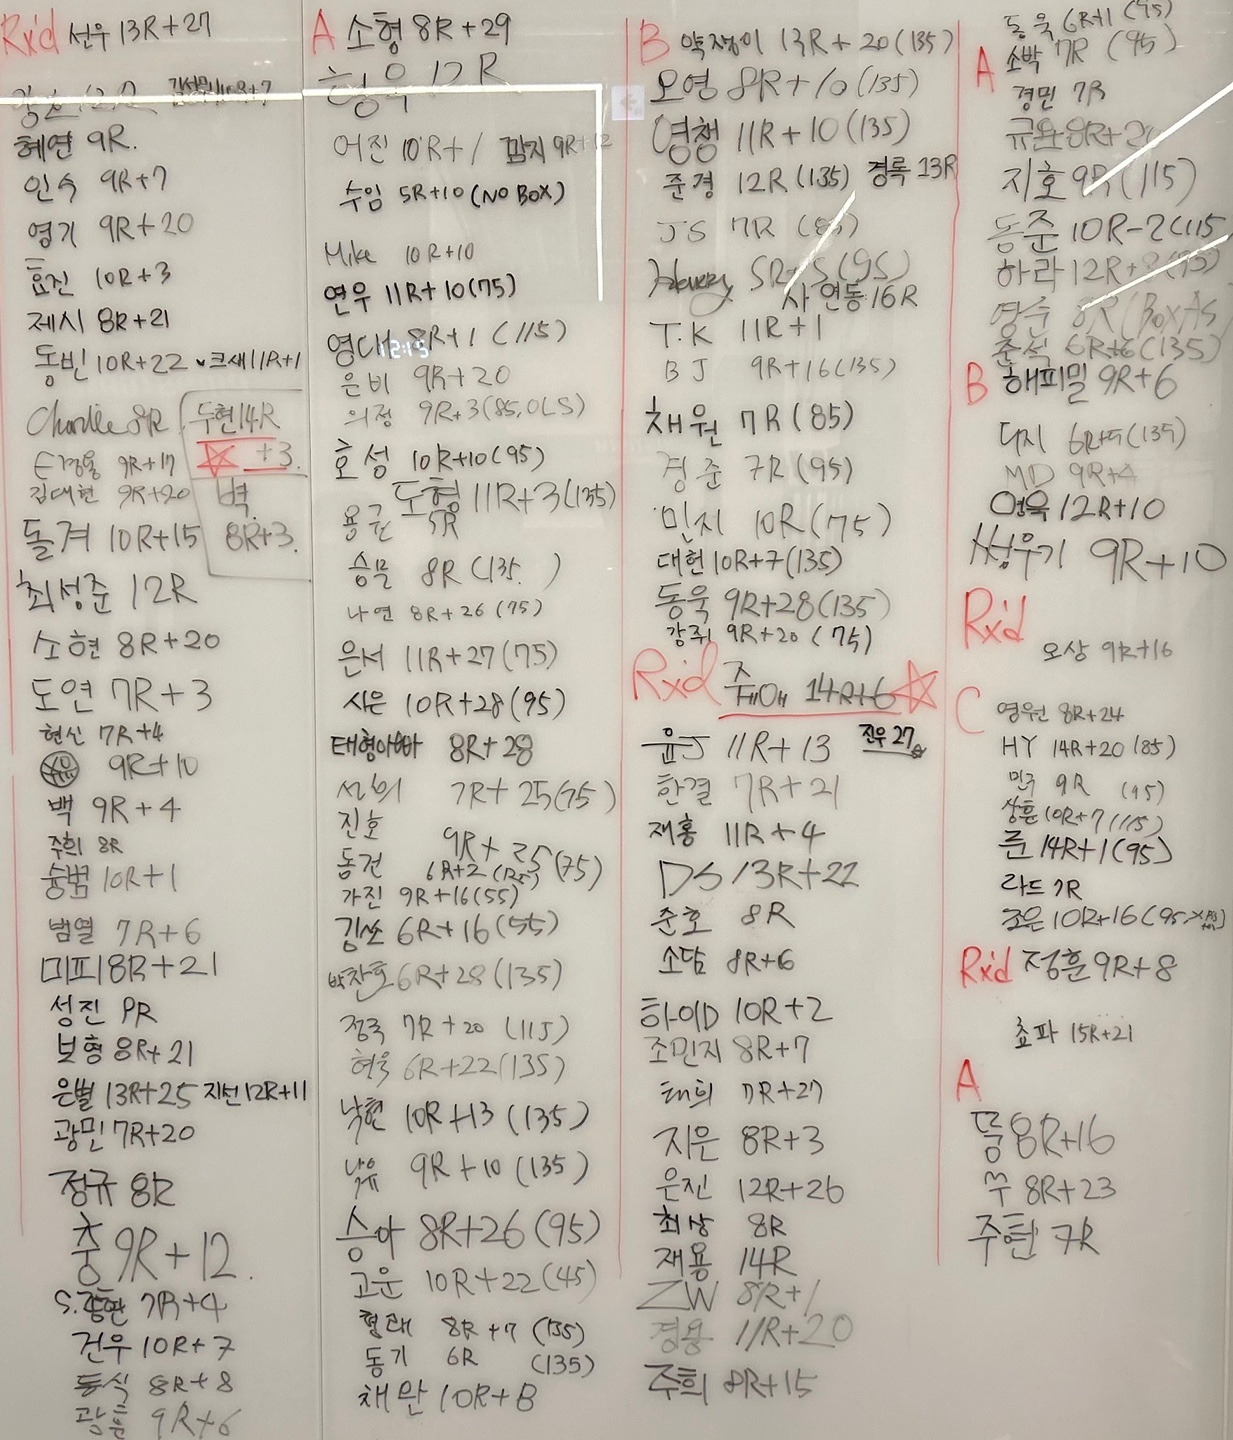 Rx'd 선우 13R+27
12R 김성무 10R+7
혜연 9R.
인숙 9R+7
영기 9R+20
효진 10R+3
제시 8R+21
동빈 10R+22 크새 11R+1
Charlie 8R 두현 14R
☆ +3.
E경용 9R+17
김대현 9R+20 벽.
돌격 10R+15 8R+3.
최성준 12R
소현 8R+20
도연 7R+3
현신 7R+4
9R+10
백 9R+4
주희 8R
숭범 10R+1
범열 7R+6
미피 8R+21
성진 PR
보형 8R+21
은별 13R+25 지선 12R+11
광민 7R+20
정규 8R
충 9R+12.
7R+4
건우 10R+7
동식 8R+8
광훈 9R+6
A 소형 8R+29
형욱 12R
어진 10R+1 깜지 9R+12
수임 5R+10 (NO BOX)
Mike 10R+10
연우 11R+10 (75)
영대 8R+1 (115)
은비 9R+20
의정 9R+3 (85, OLS)
호성 10R+10 (95)
도형 11R+3 (135)
용균 5R
승문 8R (135.)
나연 8R+26 (75)
은서 11R+27 (75)
시은 10R+28 (95)
태형아빠 8R+28
선희 7R+25 (75)
진호 9R+25 (75)
동건 6R+2
가진 9R+16 (55)
김쏘 6R+16 (55)
박찬호 6R+28 (135)
정국 7R+20 (115)
현욱 6R+22 (135)
낙현 10R+13 (135)
9R+10 (135)
승아 8R+26 (95)
고운 10R+22 (45)
형래 8R+7 (135)
동기 6R (135)
채완 10R+8
B 약쟁이 13R+20 (135)
오영 8R+10 (135)
영챙 11R+10 (135)
준경 12R (135) 경록 13R
JS 7R (85)
Harry 5R+5 (95)
사 연동 16R
T.K 11R+1
BJ 9R+16 (135)
채원 7R (85)
경준 7R (95)
민지 10R (75)
대헌 10R+7 (135)
동욱 9R+28 (135)
강쥐 9R+20 (75)
Rx'd 쥬 14R+6 ☆
윤J 11R+13 진우 27
한결 7R+21
재홍 11R+4
DS 13R+22
준호 8R
소담 8R+6
하이D 10R+2
조민지 8R+7
태희 7R+27
지은 8R+3
은진 12R+26
최상 8R
재용 14R
ZW 8R+1
경용 11R+20
주희 8R+15
동욱 6R+1 (95)
A 소박 7R (95)
경민 7R
규완 8R+20
지호 9R (115)
동준 10R-2 (115
하라 12R+8 (95)
영순 8R (Box As
준석 6R+6 (135)
B 해피밀 9R+6
돼지 6R+5 (135)
MD 9R+4
연욱 12R+10
성우기 9R+10
Rx'd
오상 9R+16
C 영원 8R+24
HY 14R+20 (85)
민주 9R (95)
상훈 10R+7 (115)
준 14R+1 (95)
라드 7R
조은 10R+16
Rx'd 정훈 9R+8
쵸파 15R+21
A
뚱 8R+16
쭈 8R+23
주현 7R